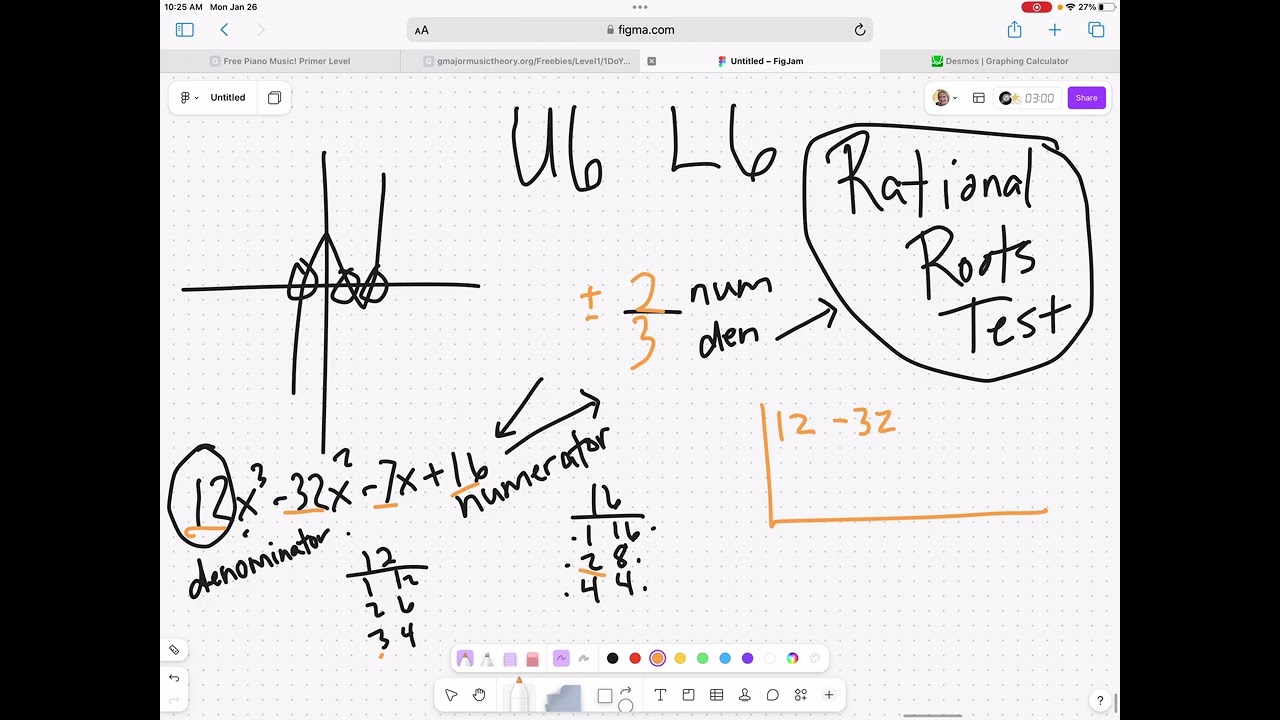 10:25 AM Mon Jan 26
27%
AA
figma.com
Free Piano Music! Primer Level
gmajormusictheory.org/Freebies/Level1/1DoY...
Untitled – FigJam
Desmos | Graphing Calculator
Untitled
03:00
Share
U6 L6
Rational
Roots
Test
± 2 num
3 den
12 -32
12x³ -32x² -7x +16
numerator
denominator
16
1 16
2 8
4 4
12
1 12
2 6
3 4
T
?